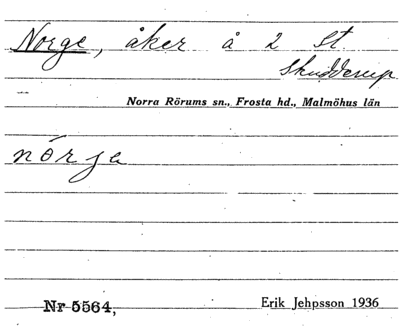 Norge, åker å 2 St
Skudderup
Norra Rörums sn., Frosta hd., Malmöhus län
nórja
Nr 5564,
Erik Jehpsson 1936